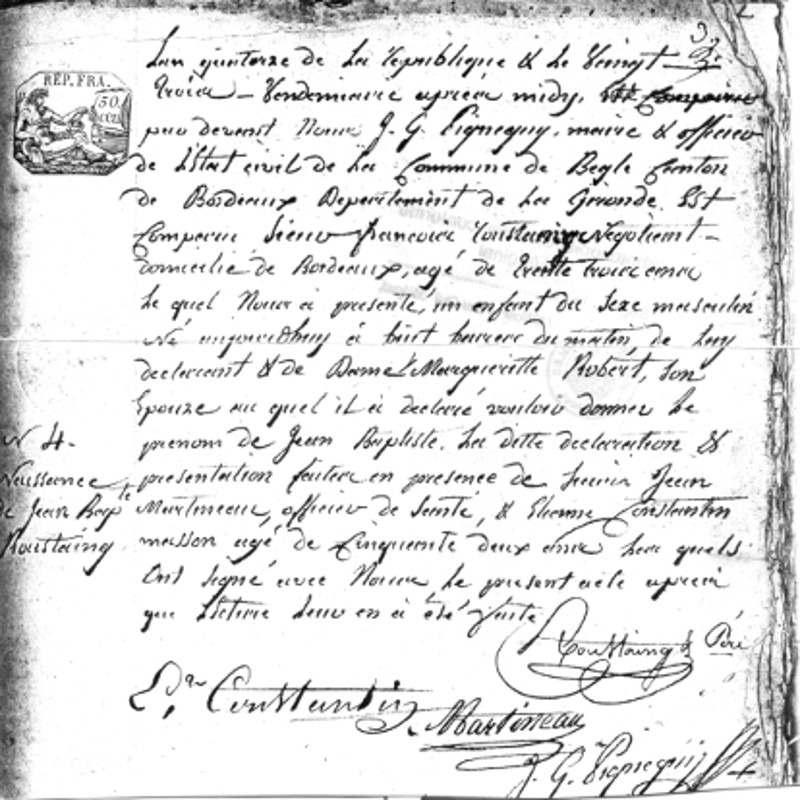 REP. FRA.
50.
Lan quatorze de La republique & Le Vingt
troix Vendemiaire apreix midy,
par devant Noux J. G. Pigneguy, maire & officier
de L'Etat civil de La Commune de Begle Canton
de Bordeaux Departement de La Gironde. Est
Comparu Sieur francoix Roustaing Negotiant
domicilié de Bordeaux, agé de trente troix anx
Le quel Noux à presenté, un enfant du Sexe masculin
Né aujourdhuy à huit heures du matin, de Luy
declarant & de Dame Margueritte Robert, Son
Epouze au quel il à declaré vouloir donner Le
prenom de Jean Baptiste. La ditte declaration &
presentation faitex en presence de Sieurs Jean
Martineau, officier de Senté, & Etienne Constantin
masson agé de Cinquante deux anx Lex quels
Ont Signé avec Noux Le present acte apreix
que Lecture Leur en à été faite
N 4.
Naissance
de Jean Bap.te
Roustaing
Roustaing Pére
Constantin
Martineau
J. G. Pigneguy